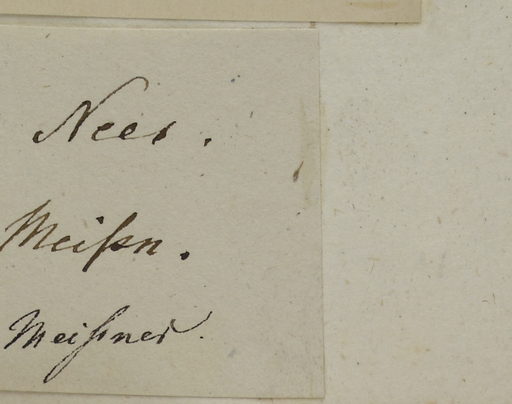 Nees.
Meißn.
Meißner.